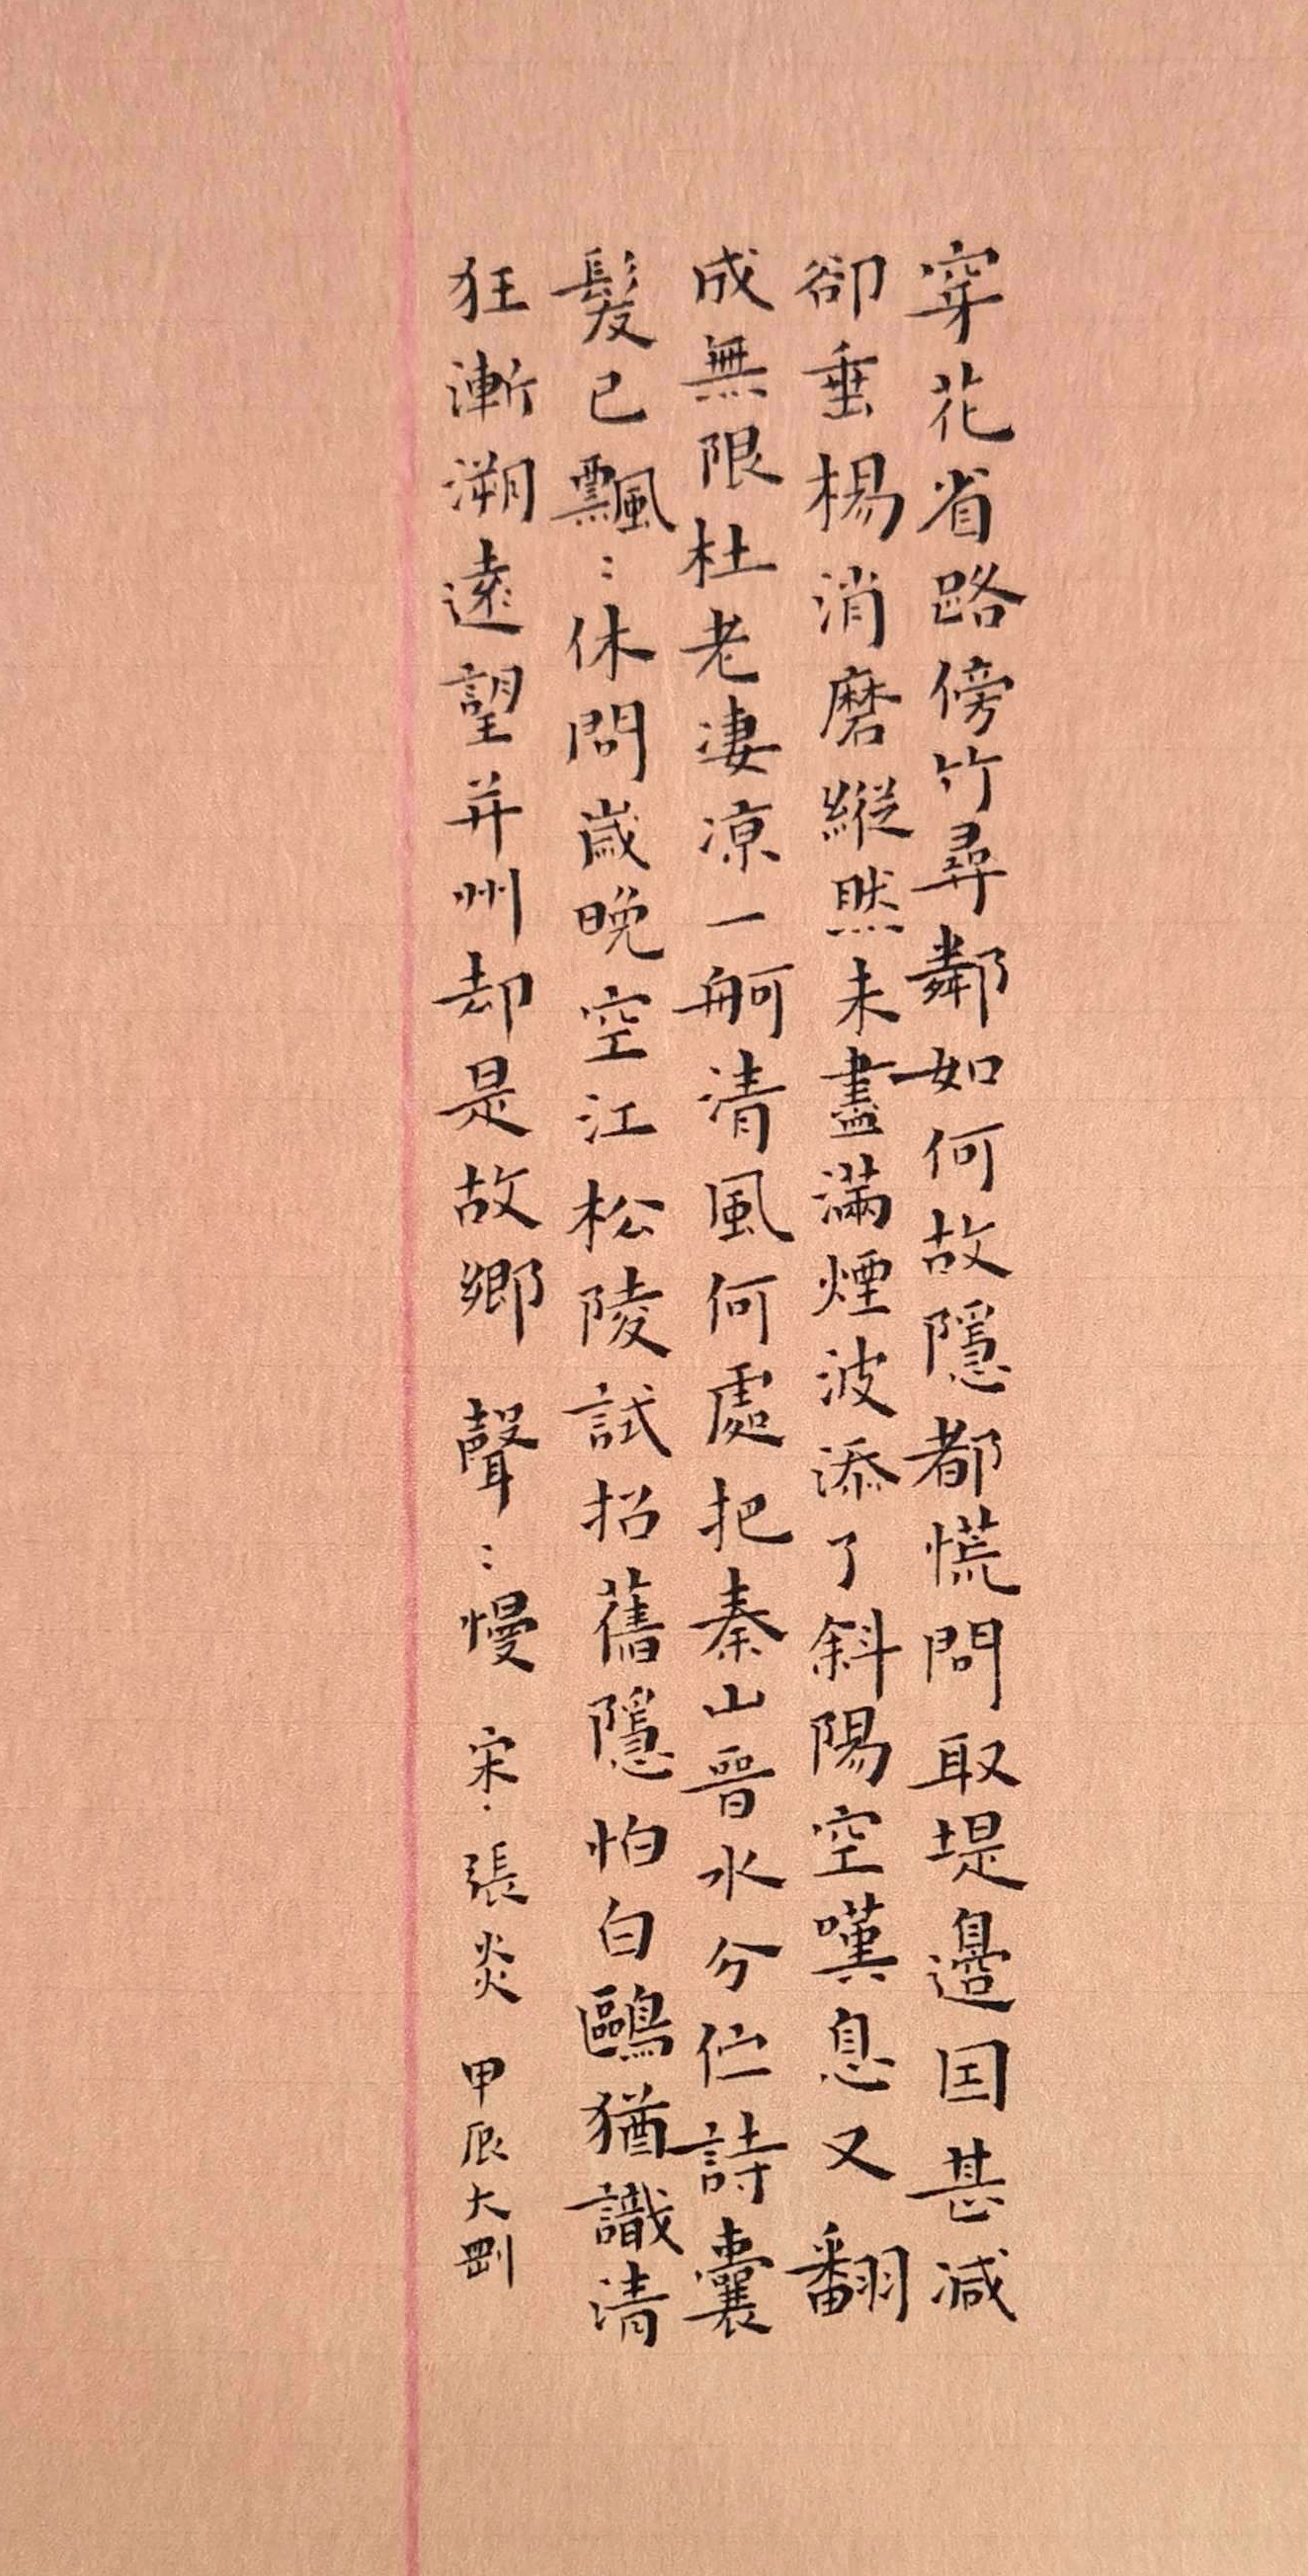 穿花省路傍竹尋鄰如何故隱都慌問取堤邊因甚減
卻垂楊消磨縱然未盡滿煙波添了斜陽空嘆息又翻
成無限杜老凄凉一舸清風何處把秦山晉水分伫詩囊
髮已飄〻休問歲晚空江松陵試招舊隱怕白鷗猶識清
狂漸溯遠望并州却是故鄉 聲〻慢 宋·張炎 甲辰大剛